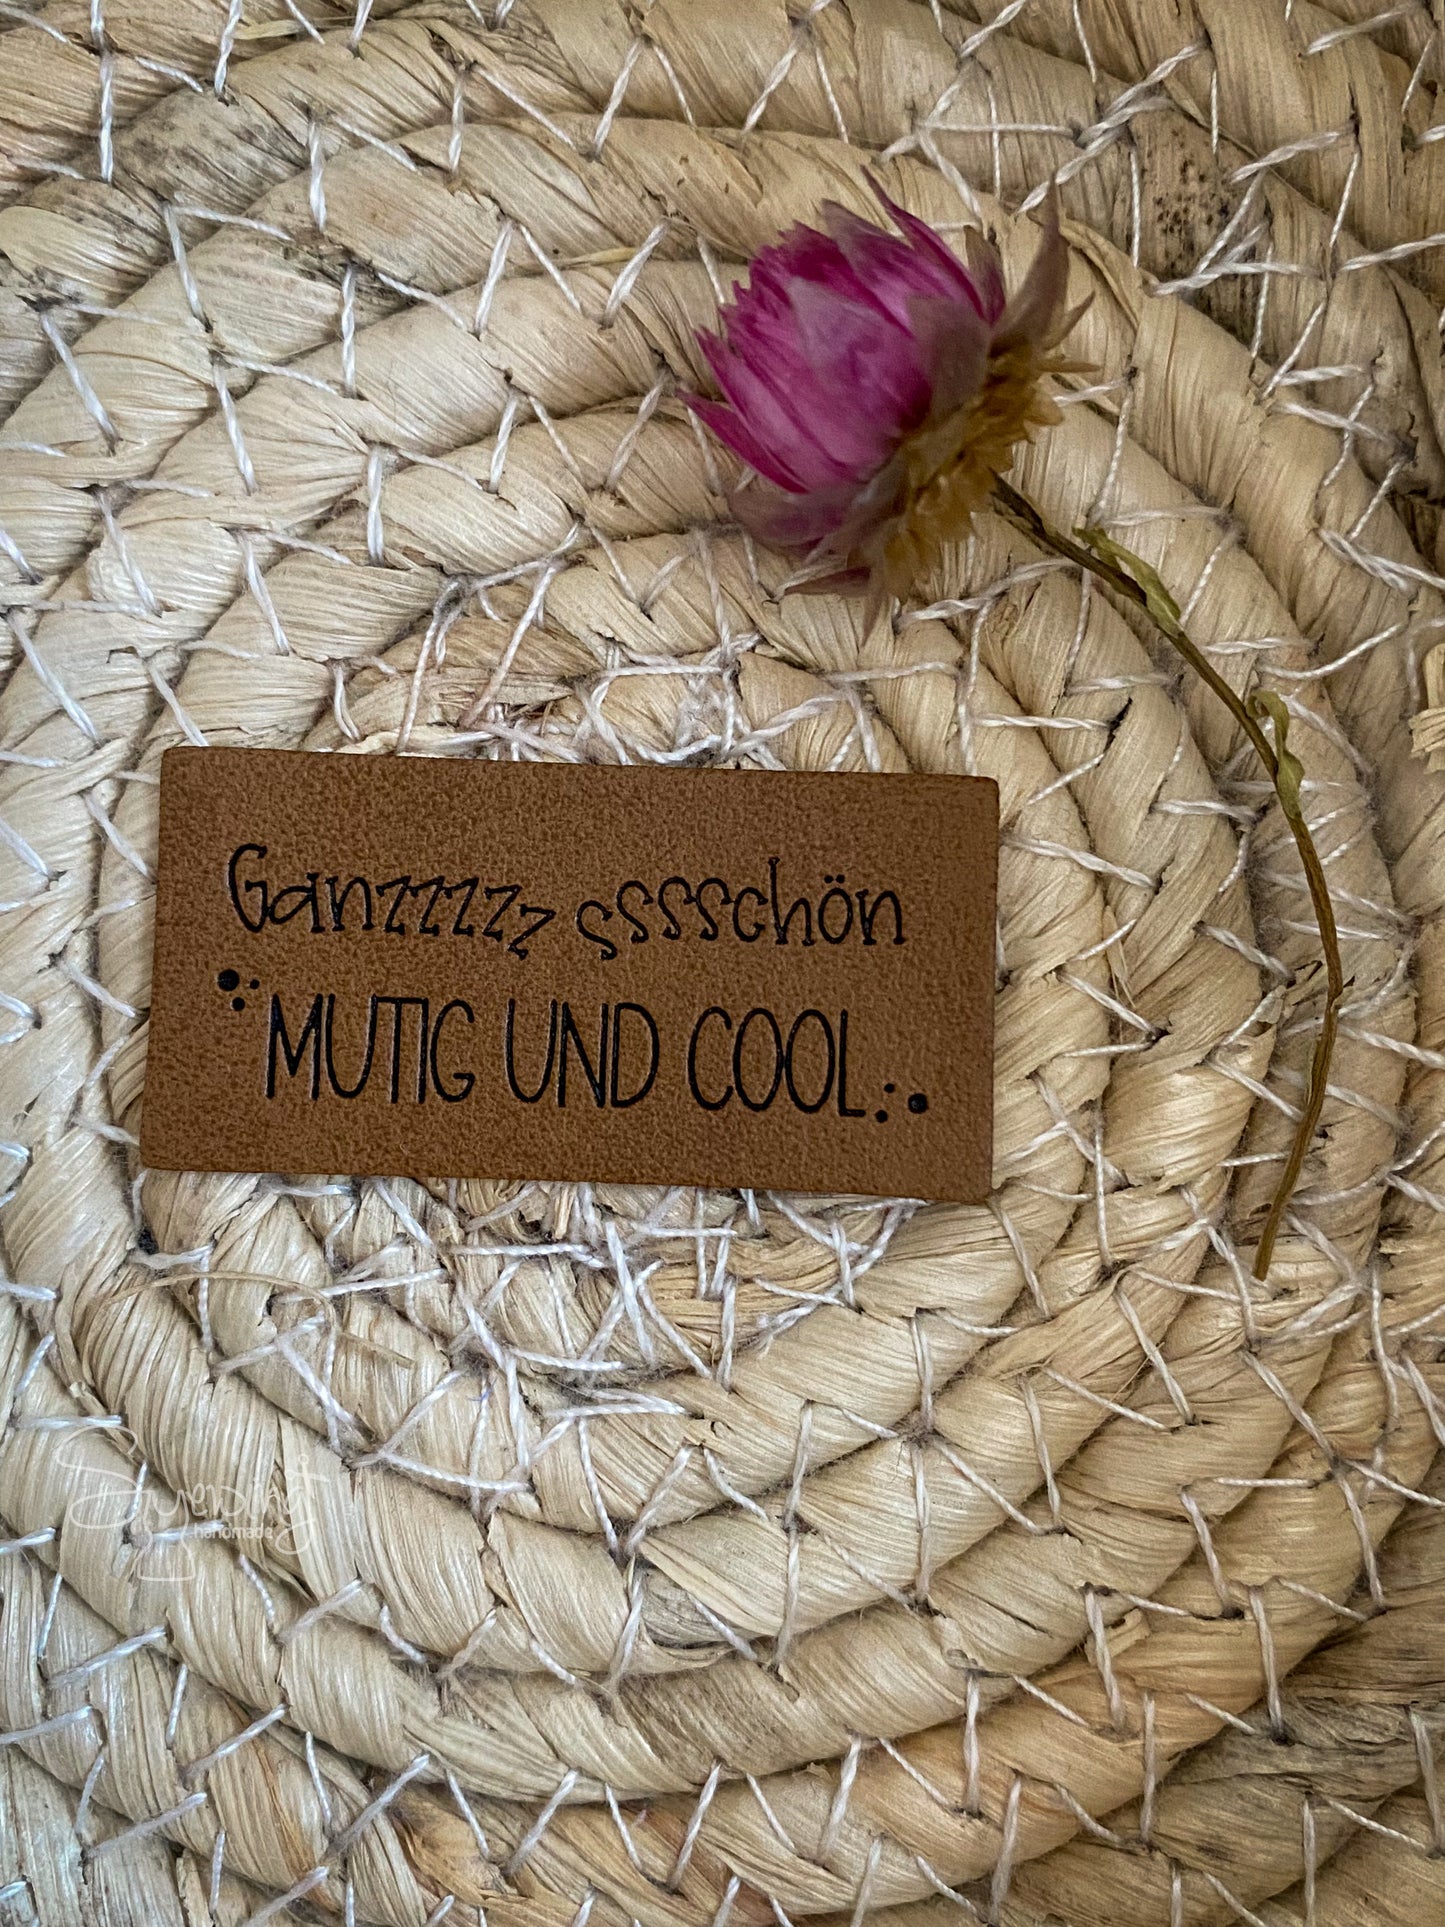 Ganzzzzz sssschön
MUTIG UND COOL
handmade